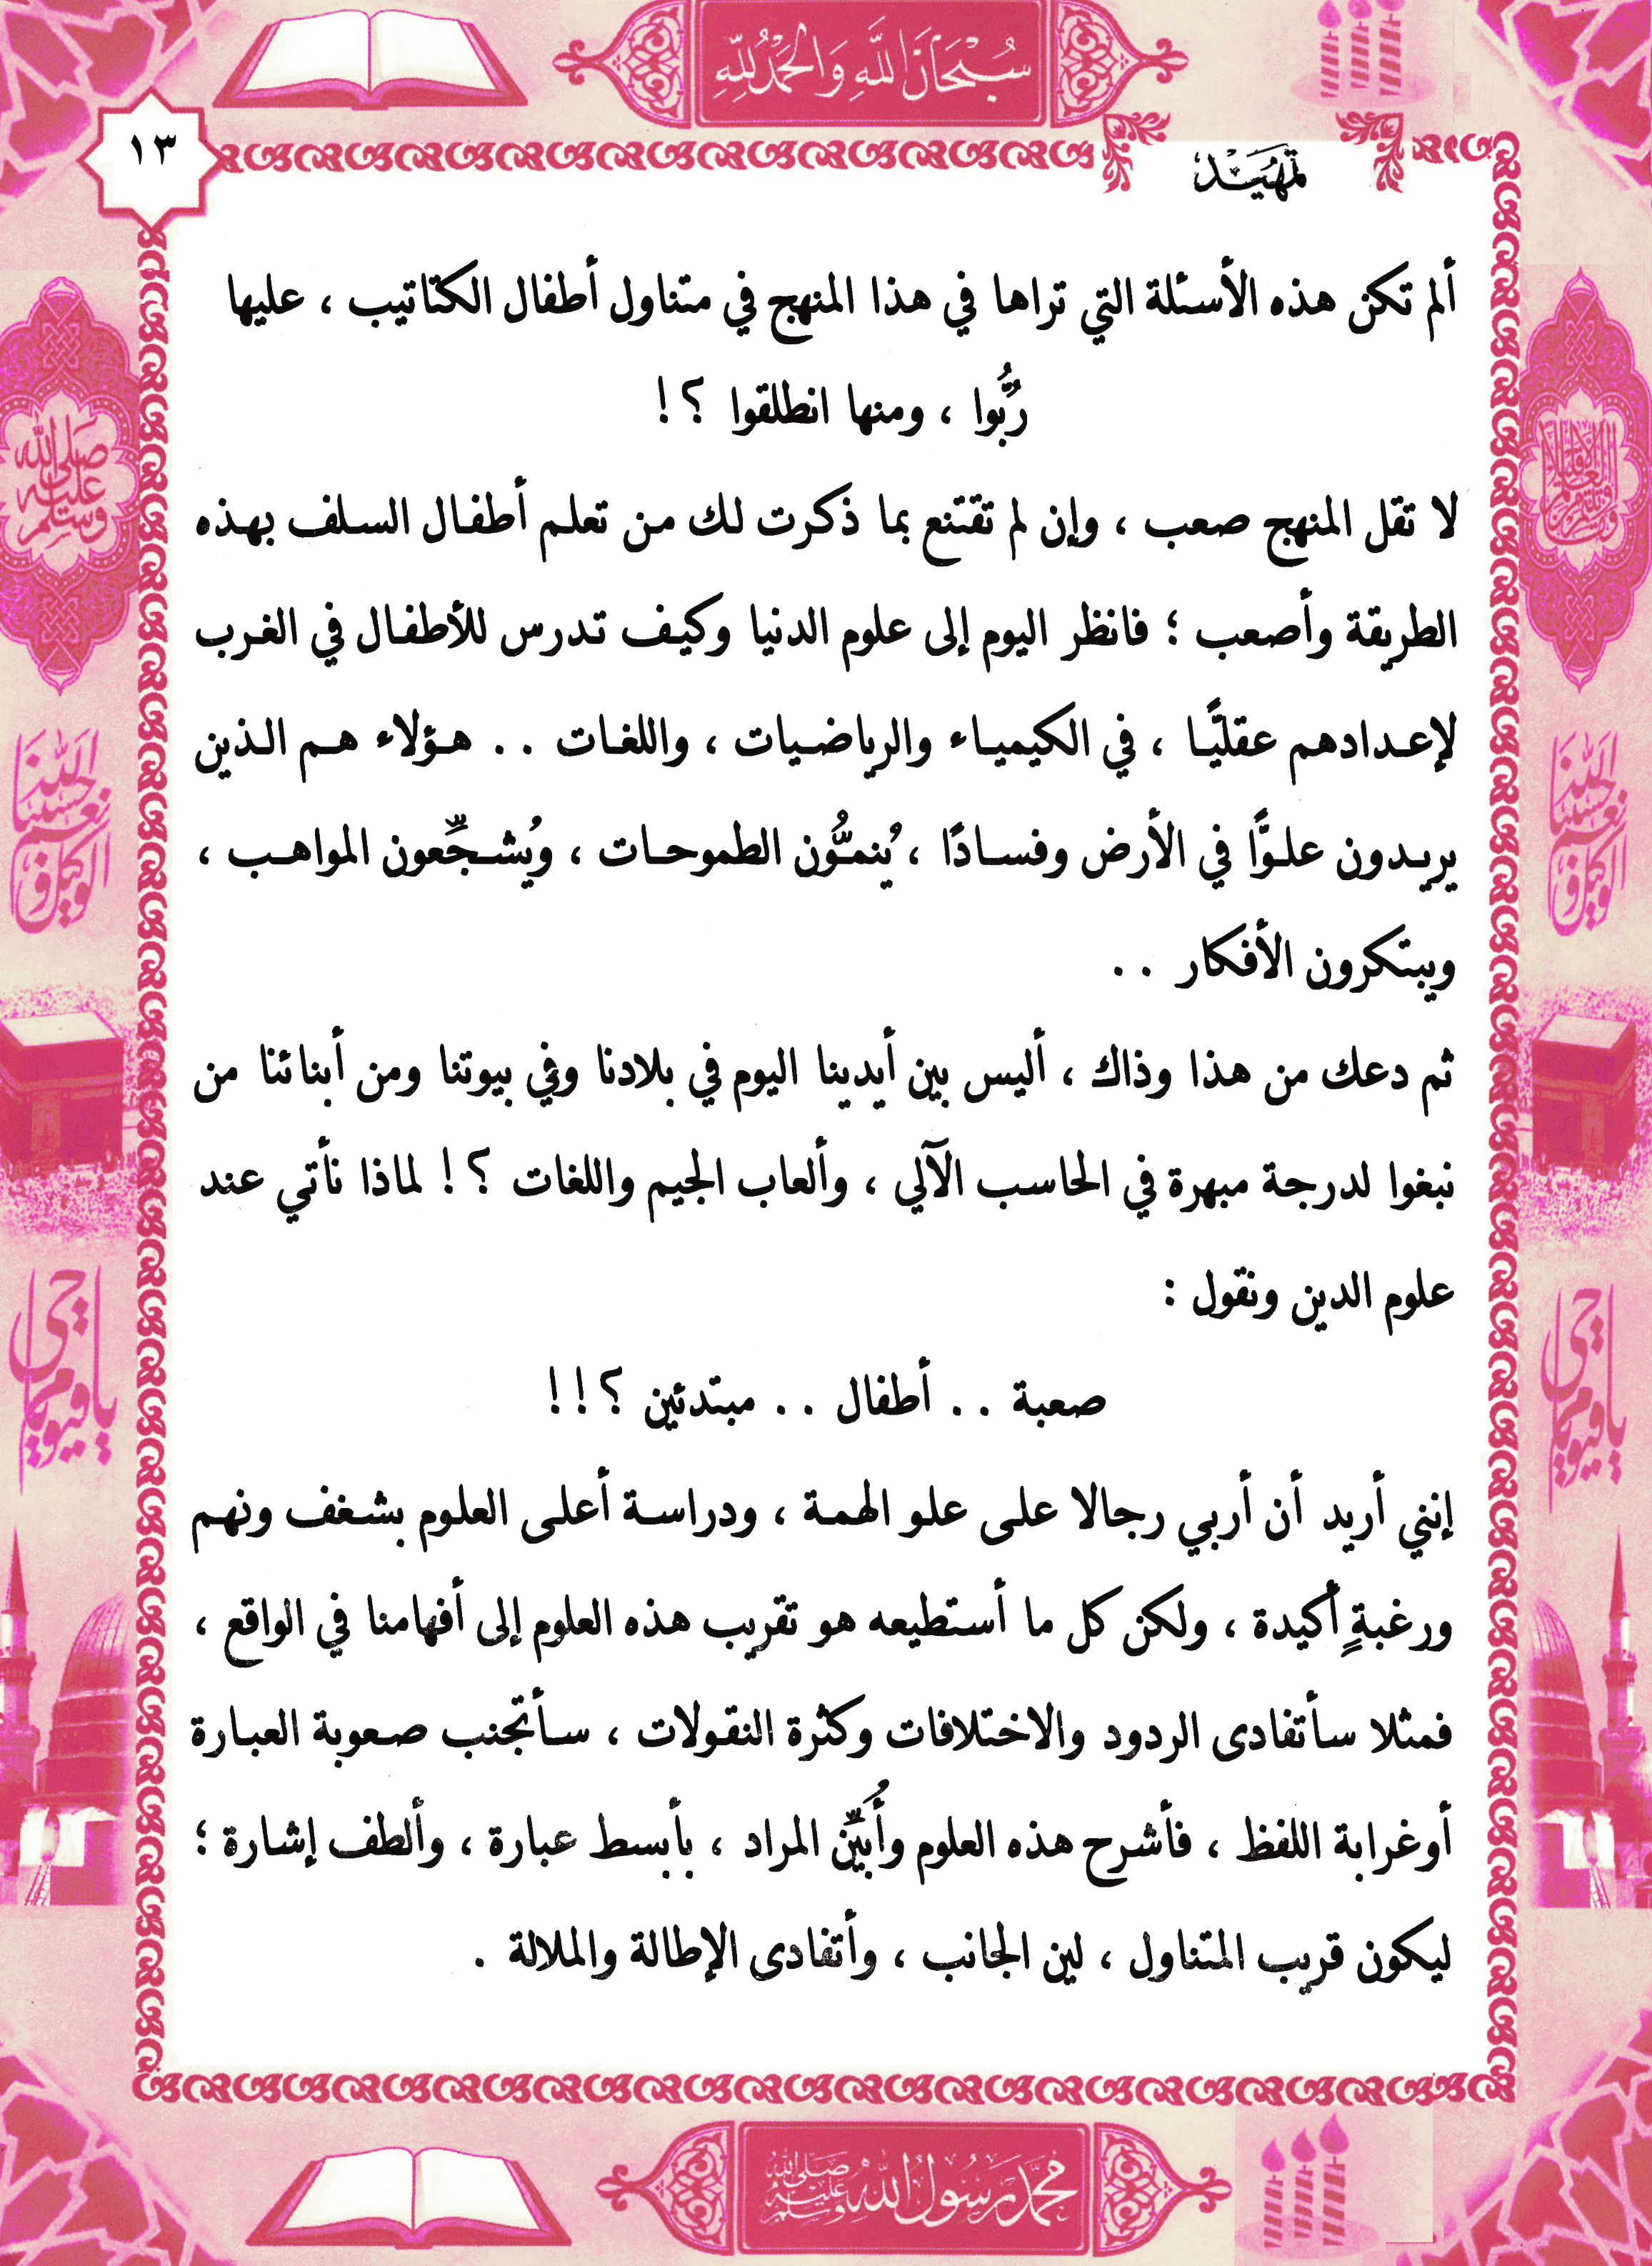 سُبْحَانَ اللَّهِ وَالْحَمْدُ لِلَّهِ
١٣
تمهيد
ألم تكن هذه الأسئلة التي تراها في هذا المنهج في متناول أطفال الكتاتيب ، عليها
رُبُّوا ، ومنها انطلقوا ؟ !
لا تقل المنهج صعب ، وإن لم تقتنع بما ذكرت لك من تعلم أطفال السلف بهذه
الطريقة وأصعب ؛ فانظر اليوم إلى علوم الدنيا وكيف تدرس للأطفال في الغرب
لإعدادهم عقليًّا ، في الكيمياء والرياضيات ، واللغات . . هؤلاء هم الذين
يريدون علوًّا في الأرض وفسادًا ، يُنمُّون الطموحات ، ويُشجِّعون المواهب ،
ويبتكرون الأفكار . .
ثم دعك من هذا وذاك ، أليس بين أيدينا اليوم في بلادنا وفي بيوتنا ومن أبنائنا من
نبغوا لدرجة مبهرة في الحاسب الآلي ، وألعاب الجيم واللغات ؟ ! لماذا نأتي عند
علوم الدين ونقول :
صعبة . . أطفال . . مبتدئين ؟ ! !
إنني أريد أن أربي رجالا على علو الهمة ، ودراسة أعلى العلوم بشغف ونهم
ورغبةٍ أكيدة ، ولكن كل ما أستطيعه هو تقريب هذه العلوم إلى أفهامنا في الواقع ،
فمثلا سأتفادى الردود والاختلافات وكثرة النقولات ، سأتجنب صعوبة العبارة
أوغرابة اللفظ ، فأشرح هذه العلوم وأُبَيِّن المراد ، بأبسط عبارة ، وألطف إشارة ؛
ليكون قريب المتناول ، لين الجانب ، وأتفادى الإطالة والملالة .
صلى الله عليه وسلم
حسبنا الله ونعم الوكيل
حسبنا الله ونعم الوكيل
يا حي يا قيوم
يا حي يا قيوم
محمد رسول الله صلى الله عليه وسلم